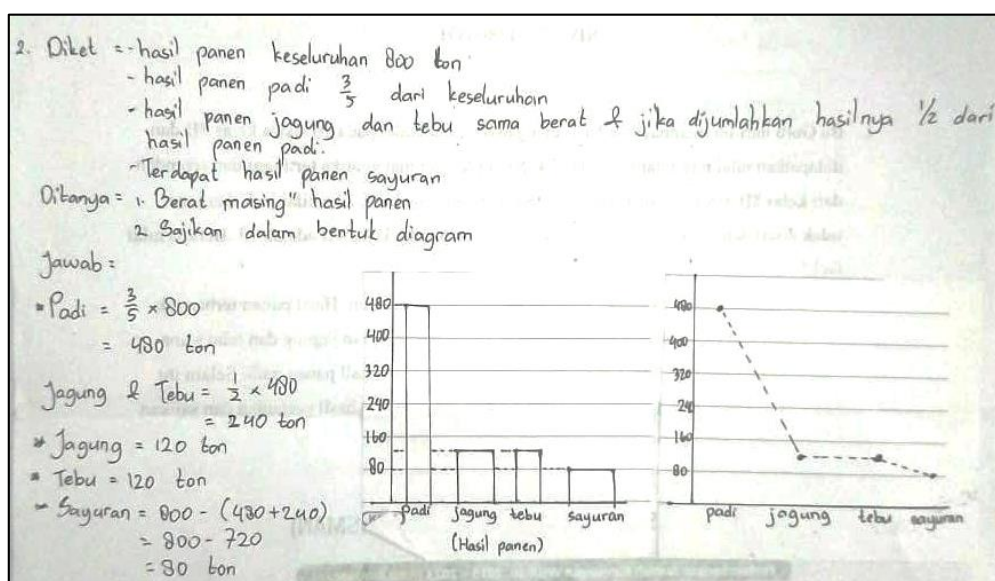 2. Diket = - hasil panen keseluruhan 800 ton
- hasil panen padi 3/5 dari keseluruhan
- hasil panen jagung dan tebu sama berat & jika dijumlahkan hasilnya 1/2 dari
hasil panen padi.
- Terdapat hasil panen sayuran
Ditanya = 1. Berat masing" hasil panen
2. Sajikan dalam bentuk diagram
Jawab =
* Padi = 3/5 × 800
= 480 ton
Jagung & Tebu = 1/2 × 480
= 240 ton
* Jagung = 120 ton
* Tebu = 120 ton
- Sayuran = 800 - (480+240)
= 800 - 720
= 80 ton
480
400
320
240
160
80
padi jagung tebu sayuran
(Hasil panen)
480
400
320
240
160
80
padi jagung tebu sayuran